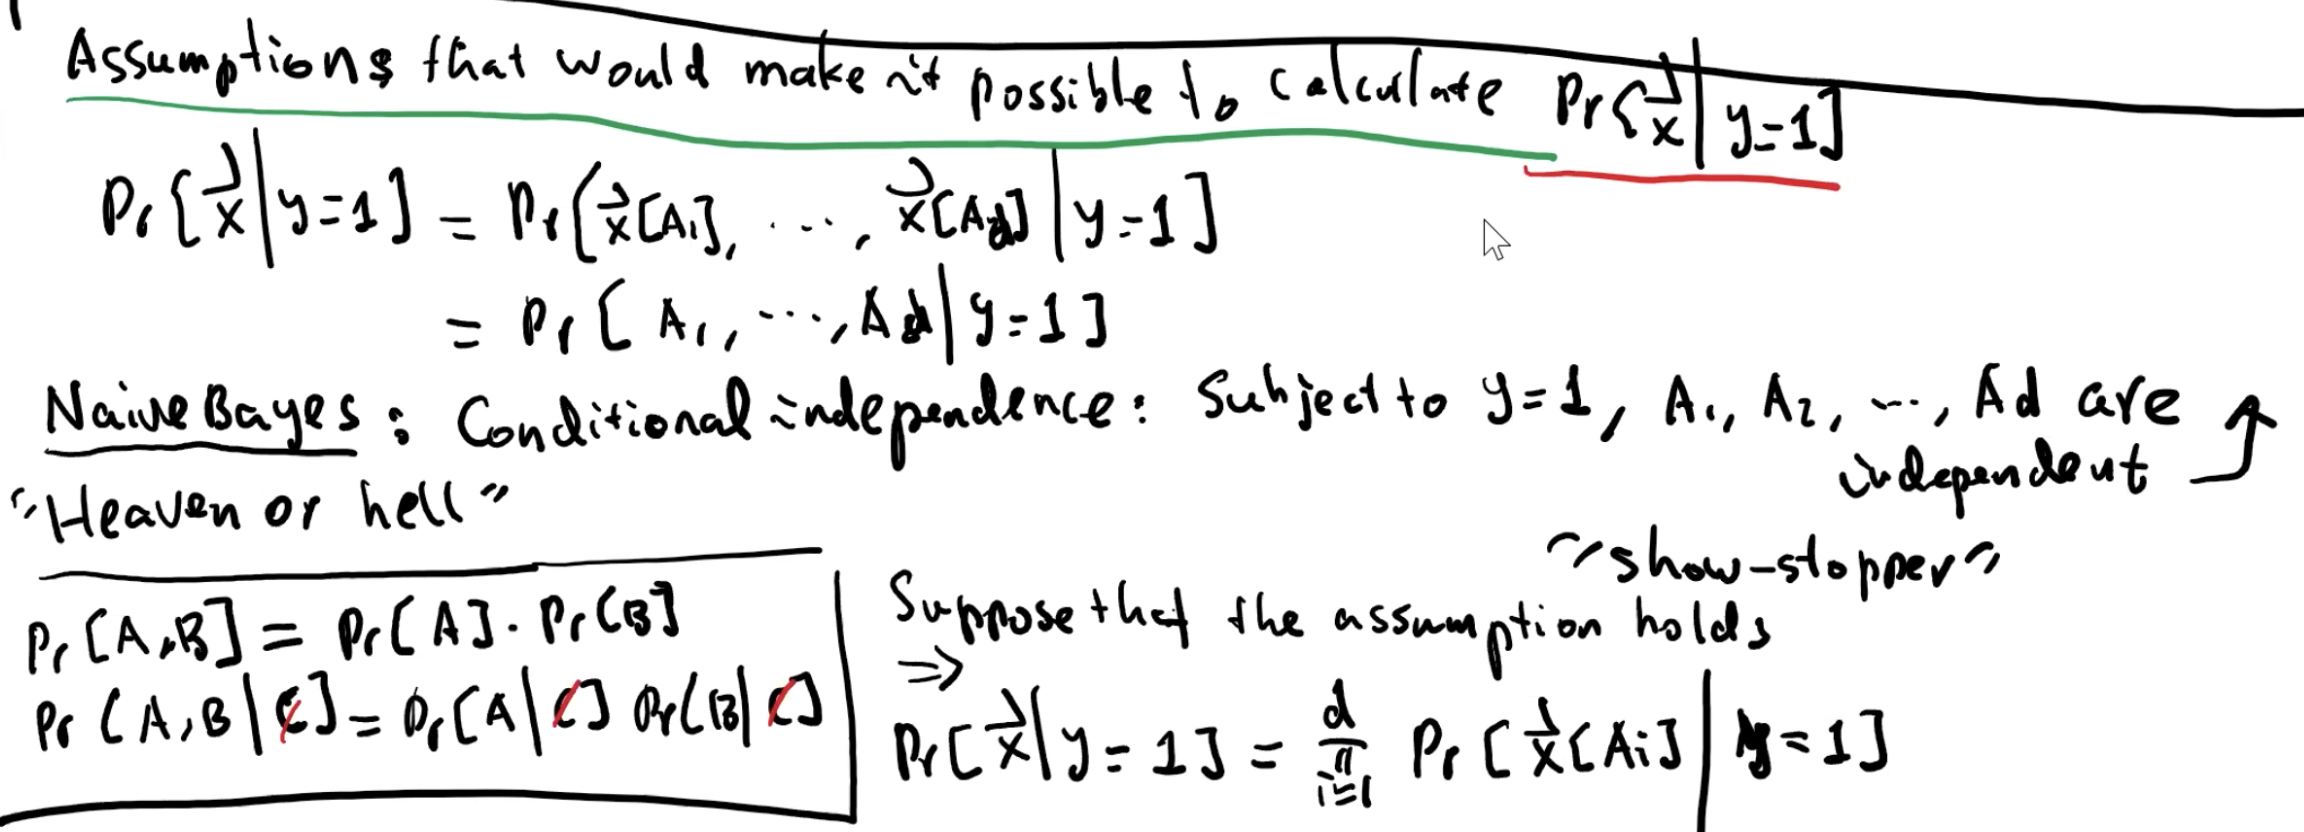 Assumptions that would make it possible to calculate Pr[x⃗ | y=1]
Pr[x⃗ | y=1] = Pr[x⃗[A₁], ..., x⃗[Ad] | y=1]
= Pr[A₁, ..., Ad | y=1]
Naive Bayes: Conditional independence: Subject to y=1, A₁, A₂, ..., Ad are
independent
"Heaven or hell"
"show-stopper"
Pr[A,B] = Pr[A] · Pr[B]
Pr[A,B | C] = Pr[A | C] Pr[B | C]
Suppose that the assumption holds
⇒
Pr[x⃗ | y=1] = ∏ᵢ₌₁ᵈ Pr[x⃗[Ai] | y=1]